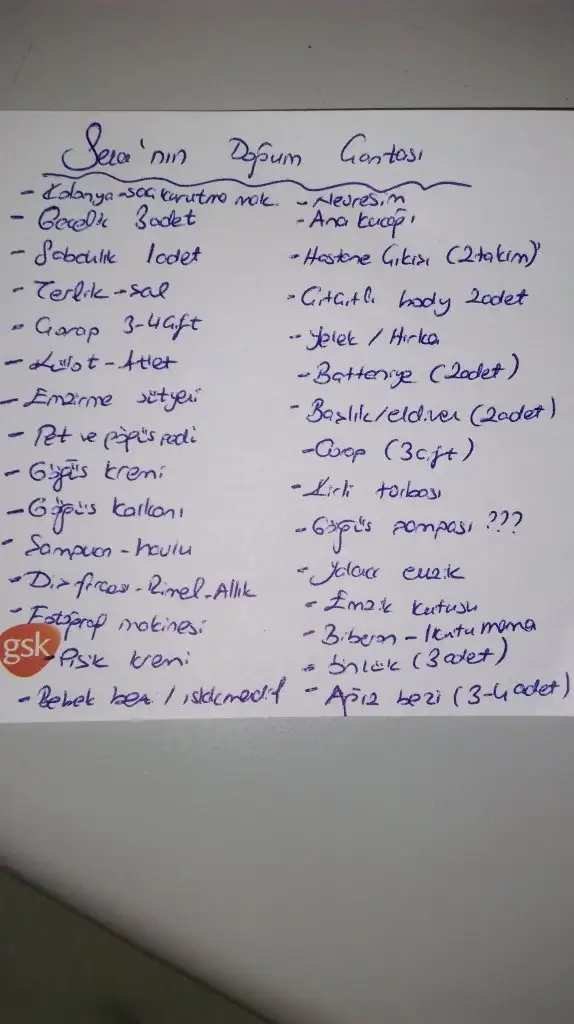 Sera'nın Doğum Çantası
- Kolonya - saç kurutma mak.
- Gecelik 3 adet
- Sabahlık 1 adet
- Terlik - şal
- Çorap 3-4 çift
- Külot - Atlet
- Emzirme sütyeni
- Pet ve göğüs pedi
- Göğüs kremi
- Göğüs kalkanı
- Şampuan - havlu
- Diş fırçası - Rimel - Allık
- Fotoğraf makinesi
gsk
- Pişik kremi
- Bebek bezi / ıslak mendil
- Nevresim
- Ana kucağı
- Hastane Çıkışı (2 takım)
- Çıtçıtlı body 2 adet
- Yelek / Hırka
- Battaniye (2 adet)
- Başlık / eldiven (2 adet)
- Çorap (3 çift)
- Kirli torbası
- Göğüs pompası ???
- Yalancı emzik
- Emzik kutusu
- Biberon - 1 kutu mama
- Önlük (3 adet)
- Ağız bezi (3-4 adet)